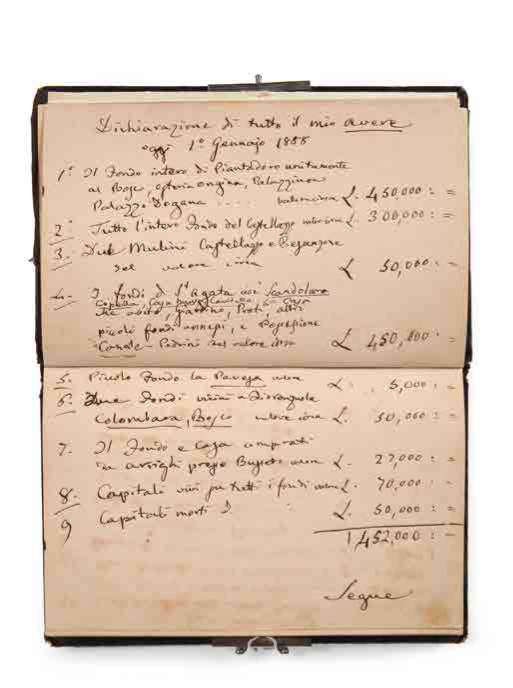 Dichiarazione di tutto il mio avere
oggi 1º Gennajo 1888
1º Il Fondo intero di Piantadoro unitamente
al Bosco, osteria, Palazzina
Palazzo Dogana .... valore circa £. 450,000: =
2. Tutto l'intero Fondo del Castellazzo valor circa £. 300,000: =
3. Due Mulini Castellazzo e Besanzone
del valore circa £ 50,000: =
4. I fondi di St Agata con Scandolara
Capella, Casa
che abito, giardino, Prati, altri
piccoli fondi annessi, e Possessione
Canale - Pedrini del valore circa £ 450,000: =
5. Piccolo Fondo la Pavesa £. 5,000: =
6. Due Fondi vicini a Fiorenzuola
Colombara, Bosco valore circa £. 50,000: =
7. Il Fondo e Casa comprati
presso Busseto £. 27,000: =
8. Capitali vivi per tutti i fondi £. 70,000: =
9 Capitali morti £. 50,000: =
1,452,000: =
Segue